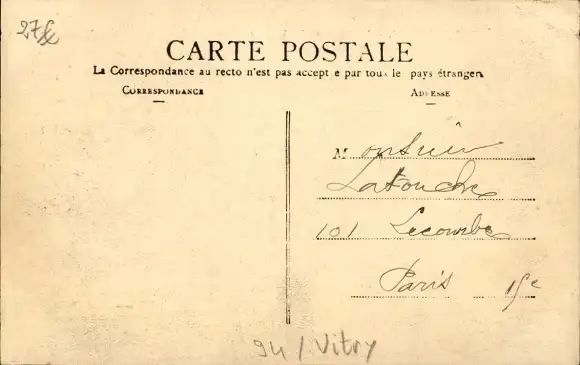 CARTE POSTALE
La Correspondance au recto n'est pas accept e par tous le pays étrangers
CORRESPONDANCE
ADRESSE
Monsieur
Latouche
101 Lecourbe
Paris 15e
94 / Vitry